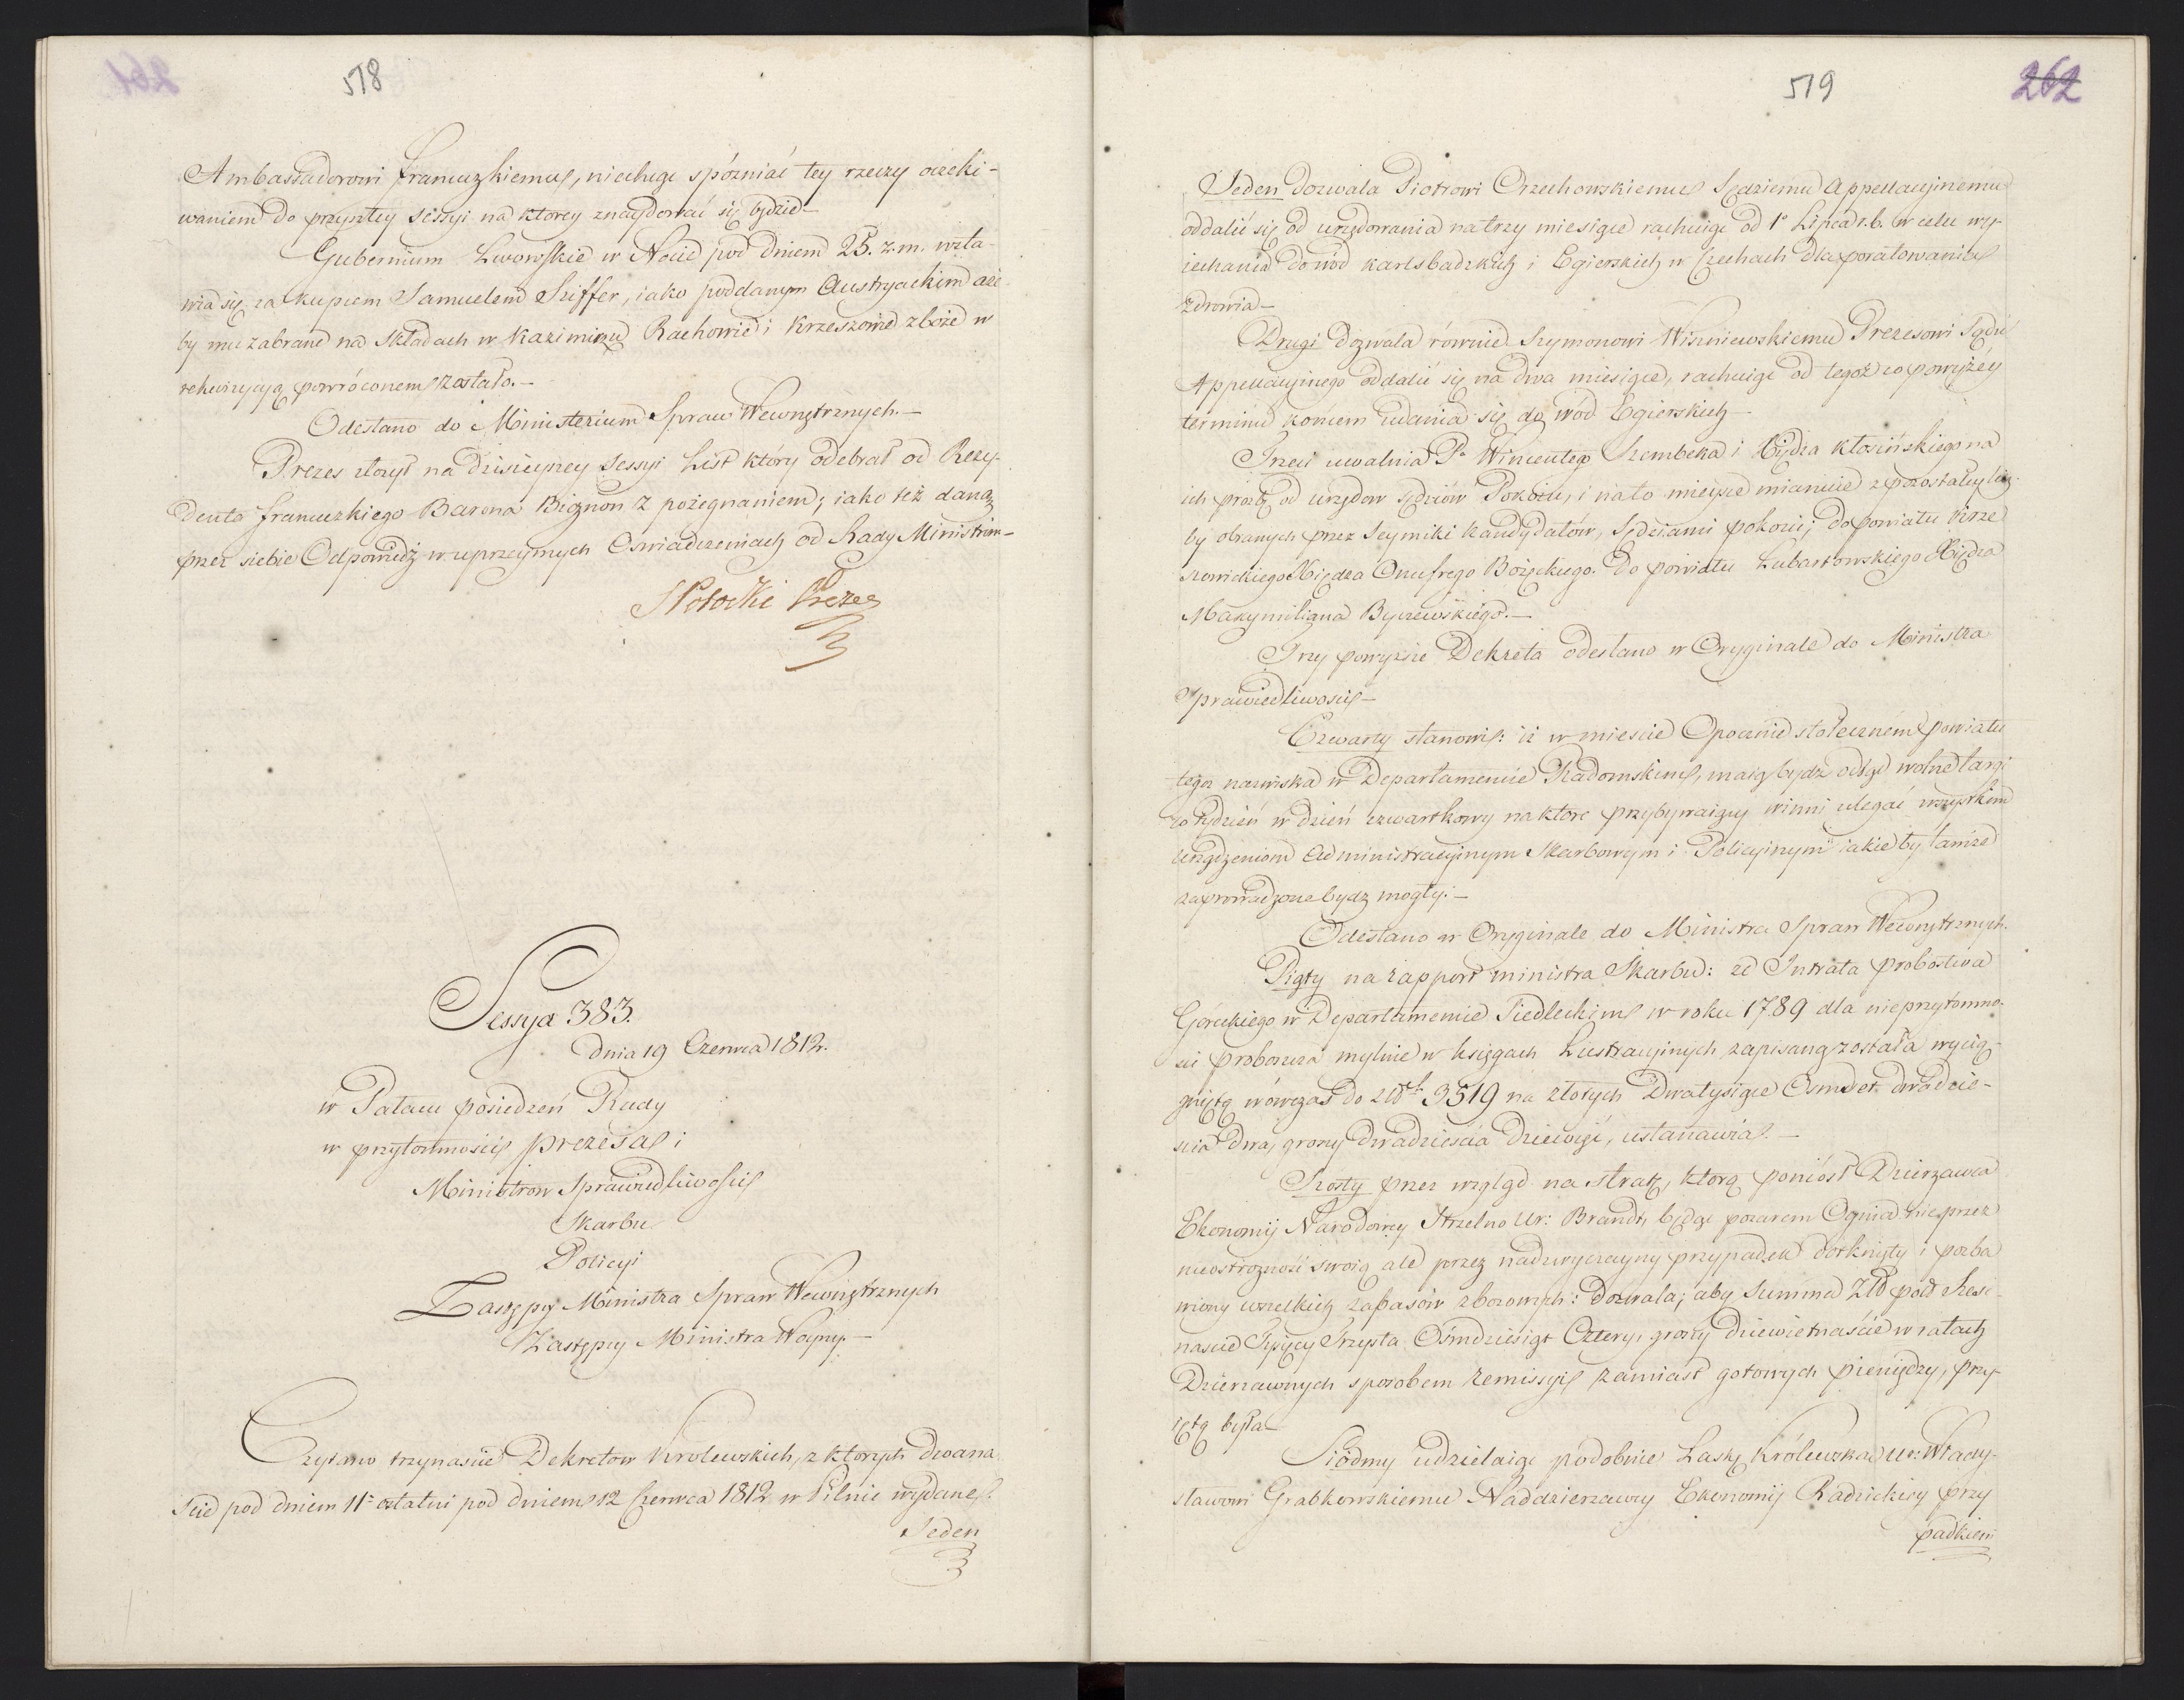 578
Ambassadorowi Francuzkiemu, niechcąc spóźniać tey rzeczy oczeki-
waniem do przyszłey Sessyi na ktorey znaydować się będzie
Gubernium Lwowskie w Nocie pod dniem 25. z.m. wsta-
wia się za kupcem Samuelem Sziffer, iako poddanym Austryackim aże-
by mu zabrane na składach w Kazimierzu Rachowie i Krzeszowie zboże w
rekwizycyą powróconem zostało.—
Odesłano do Ministerium Spraw Wewnętrznych.—
Prezes złożył na dzisieyszey Sessyi List który odebrał od Rezy-
denta francuzkiego Barona Bignon z pożegnaniem; iako też daną
przez siebie Odpowiedź w uprzeymych Oświadczeniach od Rady Ministrów—
S Potocki Prezes
Sessya 383.
Dnia 19 Czerwca 1812.
w Pałacu posiedzeń Rady
w przytomności Prezesa i
Ministrow Sprawiedliwości
Skarbu
Policyi
Zastępcy Ministra Spraw Wewnętrznych
Zastępcy Ministra Woyny.—
Czytano trzynaście Dekretow Krolewskich, z ktorych dwana
ście pod dniem 11 ostatni pod dniem 12 Czerwca 1812 w Pilnic wydane.
Jeden
519
262
Jeden dozwala Piotrowi Orzechowskiemu Sędziemu Appellacyinemu
oddalić się od urzędowania na trzy miesiące rachuiąc od 1° Lipca r.b. w celu wy-
iechania do wód Karlsbadzkich i Egierskich w Czechach dla poratowania
zdrowia—
Drugi Dozwala równie Szymonowi Wiszniewskiemu Prezesowi Sądu
Appellacyinego oddalić się na dwa miesiące, rachuiąc od tegoż co powyżéy
terminu końcem udania się do wód Egierskich—
Trzeci uwalnia Wincentego Szembeka i Xiędza Kłosińskiego na
ich prozbę od urzędow sędziów Pokoiu, i na to mieysce mianuie z pozostałey licz-
by obranych przez Seymiki Kandydatów, Sędziami pokoiu; do powiatu Krze
szowickiego Xiędza Onufrego Bożęckiego. Do powiatu Lubartowskiego Xiędza
Maxymiliana Byczewskiego.—
Trzy powyższe Dekreta odesłano w Oryginale do Ministra
Sprawiedliwości—
Czwarty stanowi: iż w mieście Opocznie stołecznem powiatu
tegoż nazwiska w Departamencie Radomskim, maią bydź odtąd wolne targi
co tydzień w dzień czwartkowy na ktore przybywaiący winni ulegać wszystkim
urządzeniom Administracyinym Skarbowym i Policyinym iakie by tamże
zaprowadzone bydź mogły.—
Odesłano w Oryginale do Ministra Spraw Wewnętrznych.
Piąty na rapport ministra Skarbu: że Intrata probostwa
Góreckiego w Departamencie Siedleckim w roku 1789 dla nieprzytomno-
ści proboszcza mylnie w księgach Lustracyinych zapisaną została wycią-
gniętą wówczas do zł 3519 na złotych Dwa tysiące Ośmset dwadzie-
ścia dwa, groszy dwadzieścia dziewięć, ustanawia.—
Szosty przez wzgląd na stratę, ktorą poniósł Dzierzawca
Ekonomij Narodowey Strzelno Ur: Brandt, będąc pożarem Ognia nie przez
nieostrożność swoią ale przez nadzwyczayny przypadek dotknięty i pozba
wiony wszelkich zapasów zbozowych: Dozwala; aby Summa Złł pol Szes-
naście Tysięcy Trzysta Ośmdziesiąt Cztery, groszy dziewietnaście w ratach
Dzierzawnych sposobem remissyi zamiast gotowych pieniędzy, przy-
iętą była—
Siódmy udzielaiąc podobnie Łaskę Królewską Ur: Włady-
sławowi Grabkowskiemu Naddzierzawcy Ekonomij Radzickiey przy
padkiem